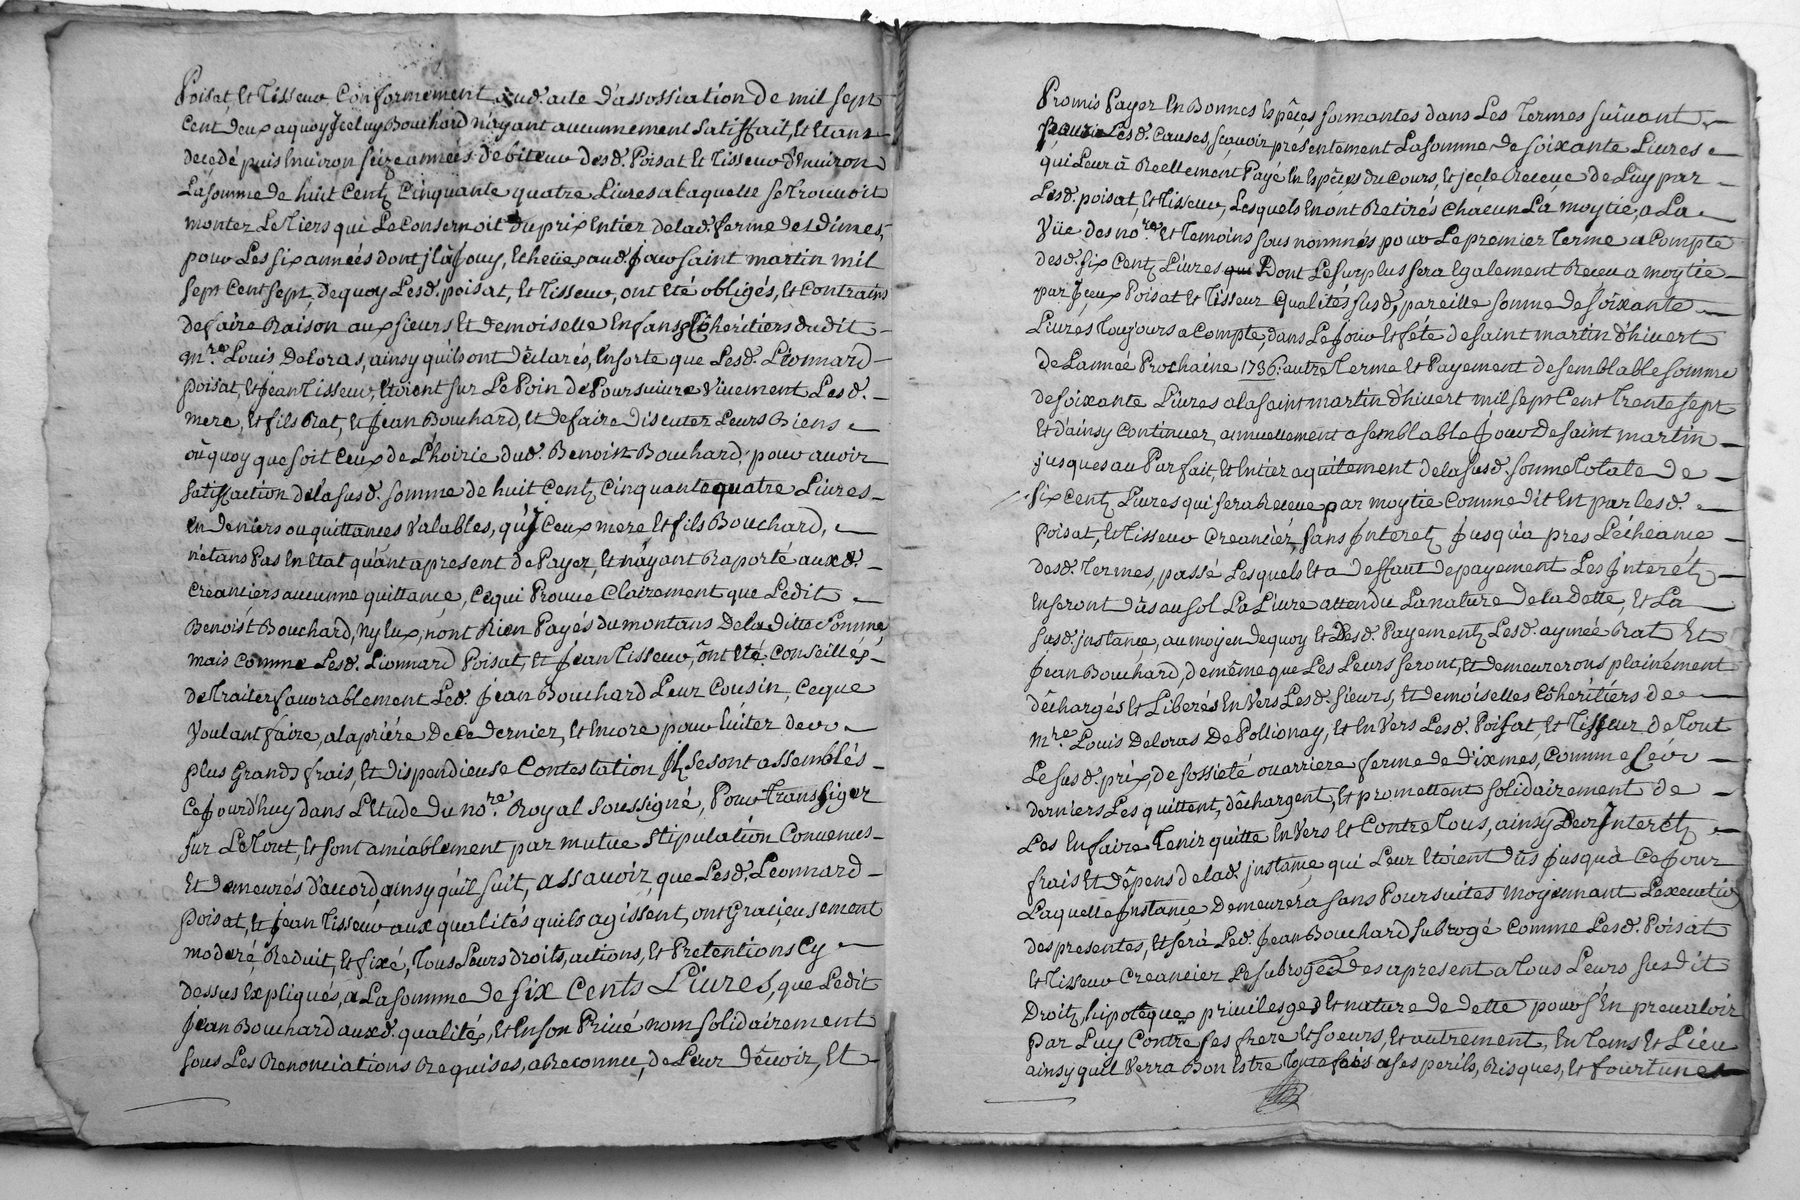 Poisat, et Tisseur, Conformement aud. acte d'assossiation de mil sept
cent deux, a quoy Jceluy Bouchard n'ayant aucunnement Satisfait, et etans
decedé puis Environ seize années debiteur desd. Poisat et Tisseur d'Environ
La somme de huit Centz Cinquante quatre Livres a laquelle se trouvoit
monter Le Tiers qui Le Consernoit du prix Entier de lad. ferme des dimes,
pour Les six années dont jl à Jouy, Echeües aud. Jour saint martin mil
sept Cent sept, de quoy Lesd. poisat, et Tisseur, ont été obligés, et contrains
de faire Raison aux sieurs Et demoiselle Enfans et Cöheritiers dudit
mre. Louis Deloras, ainsy qu'ils ont déclarés, Ensorte que Lesd. Léonnard
poisat, et Jean Tisseur, Etoient sur Le Poin de Poursuivre vivement Lesd.
mere, et fils Rat, et Jean Bouchard, et de faire discuter Leurs Biens
oû quoy que soit Ceux de L'hoirie dud. Benoist Bouchard, pour avoir
satisfaction de la susd. somme de huit Centz Cinquante quatre Livres
en deniers ou quittances valables, qu'Jceux mere et fils Bouchard,
n'etans Pas En Etat quànt a present de Payer, et n'ayant Raporté auxd.
creanciers aucunne quittance, Ce qui Prouve Clairement que Ledit
Benoist Bouchard, Ny Eux, n'ont Rien Payés du montans De la ditte Somme,
mais comme Lesd. Lionnard Poisat, et Jean Tisseur, ônt été Conseillés
de Traiter favorablement Led. Jean Bouchard Leur Cousin, Ceque
Voulant faire, a la priére de Ce dernier, et Encore pour Eviter de
plus Grands frais, et dispendieuse Contestation Jlz se sont assemblés
Ce Jourd'huy dans L'Etude du nore. Royal Soussigné, Pour Transsiger
sur Le Tout, et sont amiablement par mutue Stipulation Convenus
Et demeurés d'accord, ainsy qu'il suit, assavoir, que Lesd. Leonnard
poisat, et Jean Tisseur aux qualités qu'ils agissent, ont Gracieusement
moderé, Reduit, et fixé, Tous Leurs droits, actions, et Pretentions Cy
dessus Expliqués, a La somme de six Cents Livres, que Ledit
Jean Bouchard auxd. qualités, et En son Privé nom solidairement
sous Les Renonciations Requises, a Reconnu, de Leur Devoir, et
Promis Payer En Bonnes Espéces sonnantes dans Les Termes suivant
pour Lesd. Causes, sçavoir présentement La somme de soixante Livres
qui Leur à Reellement Payé En Espéces du Cours, et jcelle Receüe de Luy par
Lesd. poisat et Tisseur, Lesquels En ont Retirés Chacun La moytie, a La
Vüe des nore. et Temoins sous nommés pour Le premier Terme a Compte
desd. six Centz Livres Dont Le surplus sera Egalement Receu a moytie
par Jceux Poisat et Tisseur Qualités susd. pareille somme de Soixante
Livres Toujours a Compte, dans Le Jour et féte de saint martin d'hivert
de L'année Prochaine 1736: autre Terme et Payement de semblable somme
de soixante Livres a la saint martin d'hivert mil sept Cent Trente sept
Et d'ainsy Continuer, annuellement a semblable Jour de saint martin
jusques au Parfait, et Entier aquitement de la susd. somme Totale de
six Centz Livres qui sera Receue par moytie Comme dit Est par Lesd.
Poisat, et Tisseur Creanciér, sans Jnteretz Jusqu'a pres L'écheance
desd. Termes, passé Lesquels et a deffaut de payement Les Jnterétz
En seront dûs au sol La Livre attendu La nature de la Dette, et La
susd. jnstance, au moyen de quoy et Desd. Payementz Lesd. aymée Rat et
Jean Bouchard, de même que Les Leurs seront, et demeurerons plainément
déchargés et Liberés En Vers Les d. sieurs, et demoiselles Cöheritiers de
mre. Louis Deloras De Pollionay, et En Vers Lesd. Poisat, et Tisseur de Tout
Le susd. prix, de sossieté ou arriere ferme de dixmes, Comme Ces
derniers Les quittent, déchargent, et promettent solidairement de
Les En faire Tenir quitte En Vers et Contre Tous, ainsy Des Jnterêtz
frais et dépens de lad. jnstance qui Leur Etoient dûs jusqu'à Ce Jour
Laquelle Jnstance demeurera sans Poursuites moyennant L'exécution
des presentes, et sera Led. Jean Bouchard subrogé Comme Lesd. Poisat
et Tisseur Creancier Le subrogés Des apresent a Tous Leurs susdit
Droitz, hipotéques, privileges, et nature de dette pour s'En prevaloir
Par Luy Contre ses frere et soeurs, et autrement, En Tems et Lieu
ainsy qu'il Verra Bon Estre Toutefois a ses perils, Risques, et fourtunes